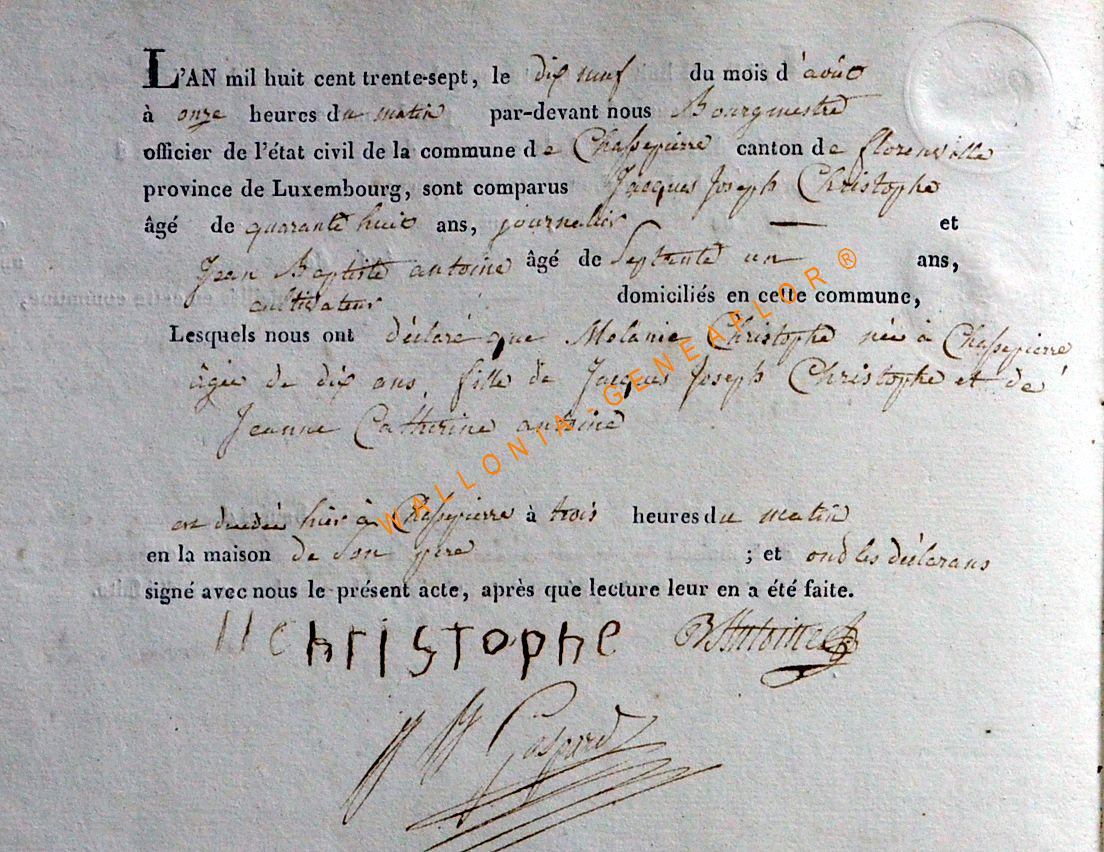 L'AN mil huit cent trente-sept, le dix neuf du mois d'août
à onze heures du matin par-devant nous Bourgmestre
officier de l'état civil de la commune de Chassepierre canton de florenville
province de Luxembourg, sont comparus Jacques Joseph Christophe
âgé de quarante huit ans, journalier — et
Jean Baptiste antoine âgé de Septante un ans,
cultivateur domiciliés en cette commune,
Lesquels nous ont déclaré que Melanie Christophe née à Chassepierre
âgée de dix ans, fille de Jacques Joseph Christophe et de
Jeanne Catherine antoine
est décédée hier à Chassepierre à trois heures du matin
en la maison de son père ; et ont les déclarans
signé avec nous le présent acte, après que lecture leur en a été faite.
Christophe BAntoine
Gaspard
WALLONIA-GENEAPLOR®